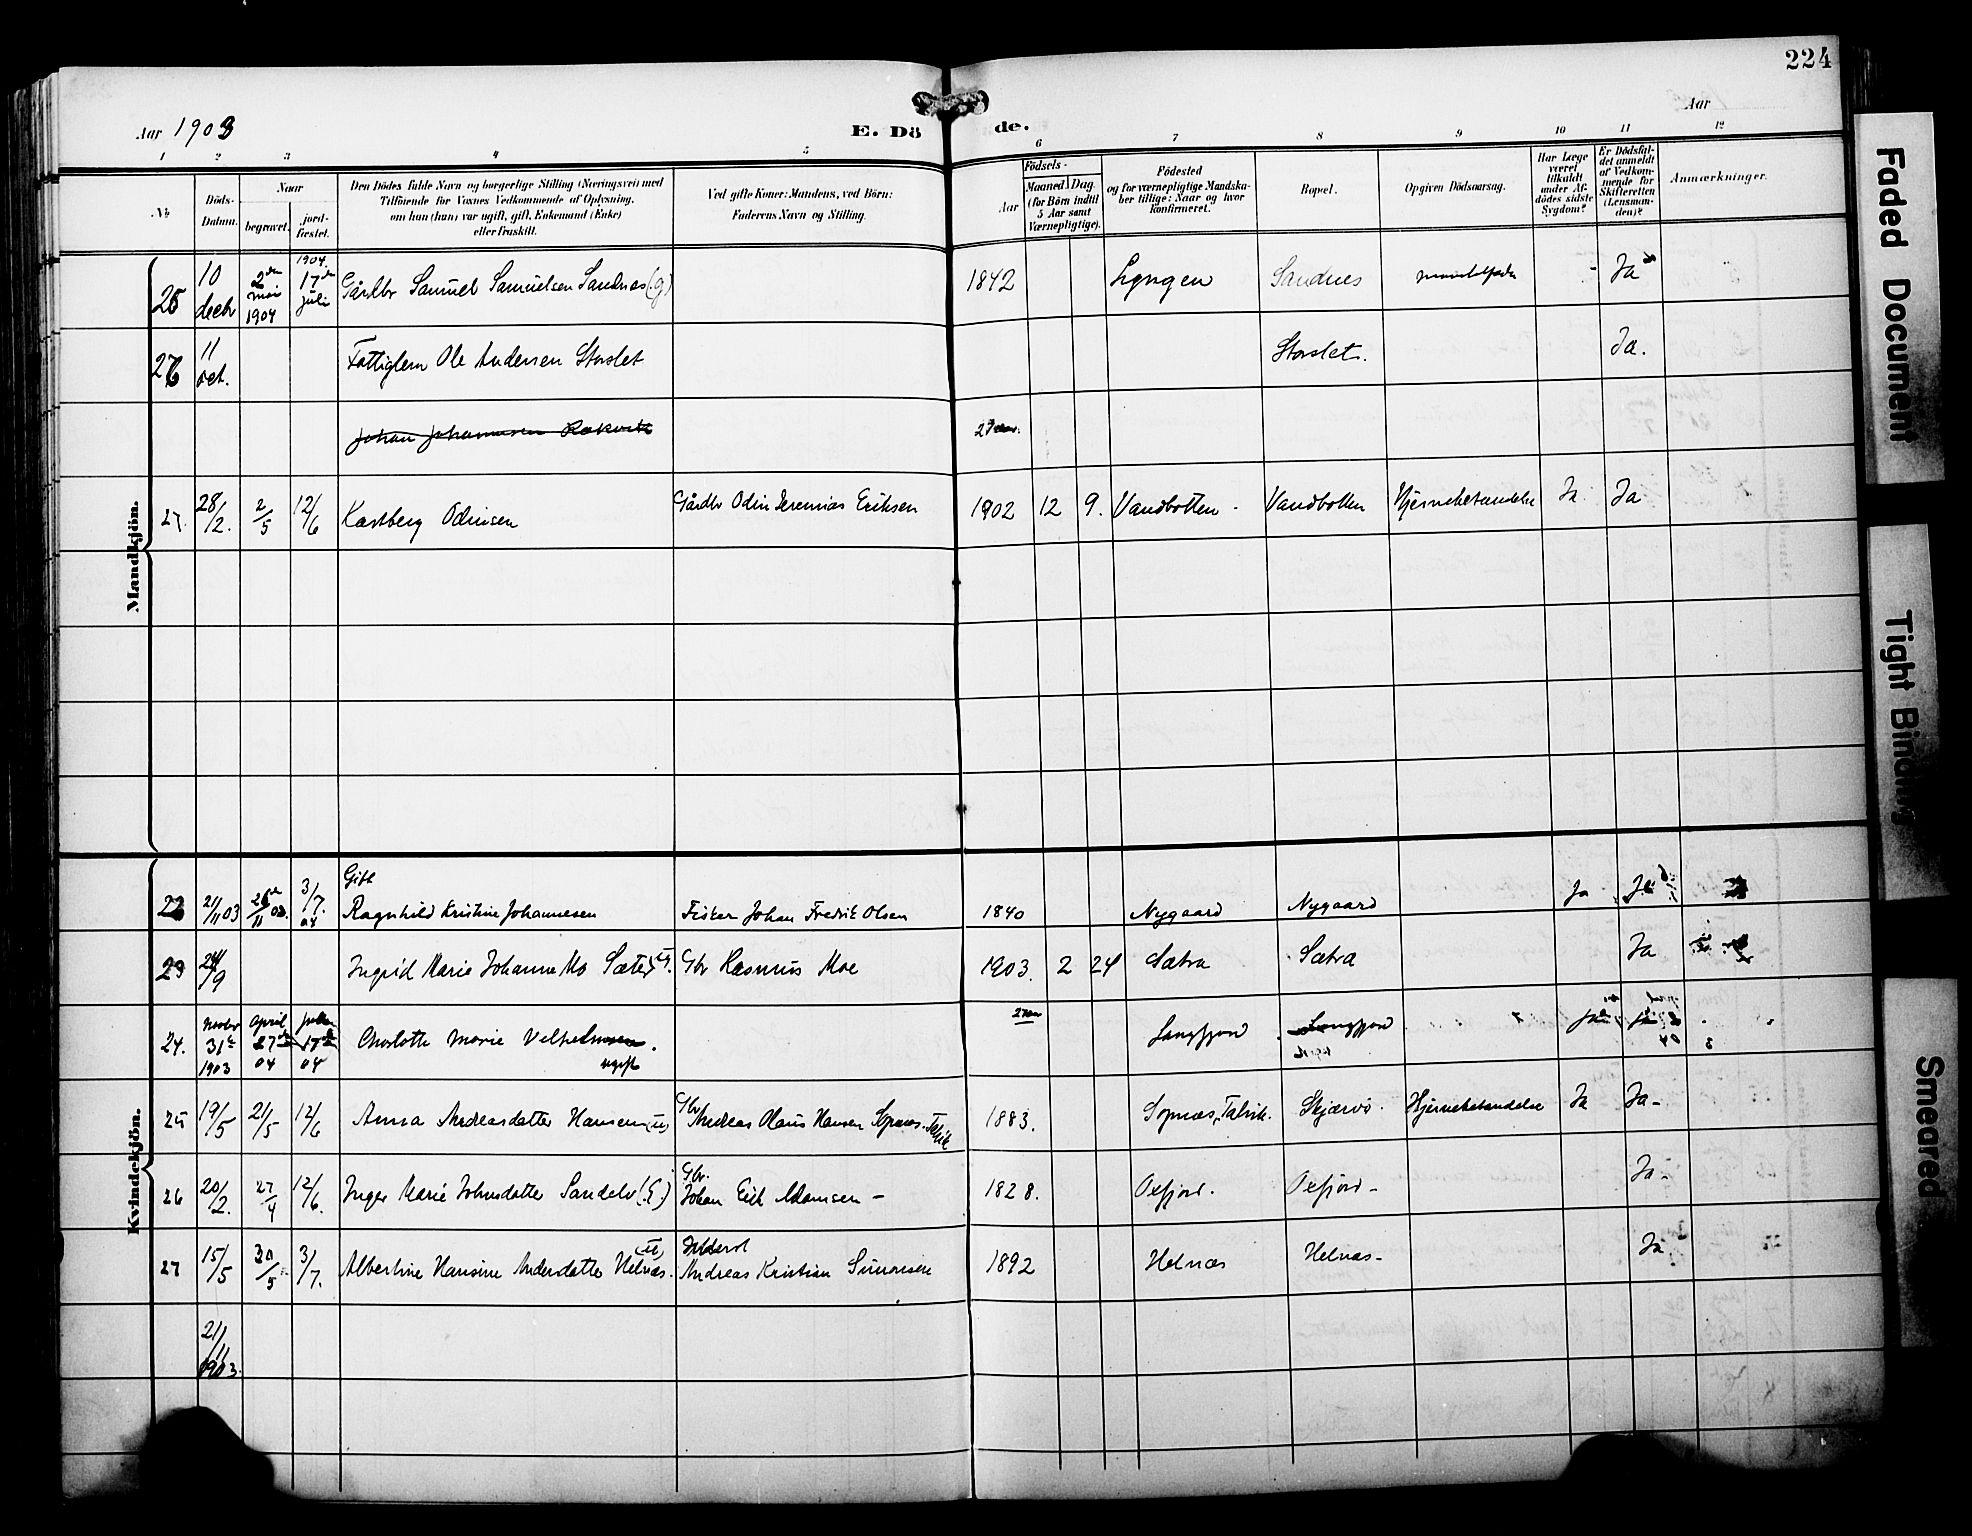 224
Aar 1903
E. Dö
de.
Aar
1 2 3 4 5 6 7 8 9 10 11 12
No
Döds-
Datum.
Naar
begravet.
jord-
fæstet.
Den Dödes fulde Navn og borgerlige Stilling (Næringsvei) med
Tilföiende for Voxnes Vedkommende af Oplysning,
om han (hun) var ugift, gift, Enkemand (Enke)
eller fraskilt.
Ved gifte Koner: Mandens, ved Börn:
Faderens Navn og Stilling.
Födsels-
Aar
Maaned. Dag.
(for Börn indtil
5 Aar samt
Værnepligtige).
Födested
og for værnepligtige Mandska-
ber tillige: Naar og hvor
konfirmeret.
Bopæl.
Opgiven Dödsaarsag.
Har Læge
været
tilkaldt
under Af-
dödes sidste
Sygdom?
Er Dödsfal-
det anmeldt
af Vedkom-
mende for
Skifteretten
(Lensman-
den)?
Anmærkninger.
Mandkjön.
25 10 decbr 2den mai 1904 1904. 17de juli Gårdbr Samuel Samuelsen Sandnes (g) 1842 Lyngen Sandnes Ja
26 11 oct. Fattiglem Ole Andersen Storslet Storslet. Ja.
Johan Johannesen
27. 28/2. 2/5 12/6 Kastberg Odinsen Gårdbr Odin Jeremias Eriksen 1902 12 9. Vandbotten Vandbotten Hjernebetændelse Ja Ja
Kvindekjön.
22 21/11 03 3/7. 04 Gift Ragnhild Kristine Johannesen Fisker Johan Fredrik Olsen 1840 Nygaard Nygaard Ja Ja
23 24/9 Ingrid Marie Johanne Mo Sætra Gbr Rasmus Moe 1903. 2 24 Sætra Sætra Ja
24. 31te 1903 April 27de 04 17de 04 Charlotte Marie ugift Langfjord Langfjord
25 19/5 21/5 12/6 Anna Andreasdatter Hansen (u) Gbr Andreas Olaus Hansen Sopnes Talvik 1883. Sopnæs, Talvik. Skjærvö. Hjernebetændelse Ja Ja-
26 20/2. 27/4 12/6. Inger Marie Johnsdatter Sandelv (E.) Gbr. Johan Erik Adamsen - 1828. Oxfjord. Oxfjord- Ja-
27 15/5 30/5 3/7. Albertine Hansine Andersdatter Helnæs. (u) Andreas Kristian Simonsen 1892 Helnæs Helnæs- Ja
21/11 1903.
Faded Document
Tight Binding
Smeared